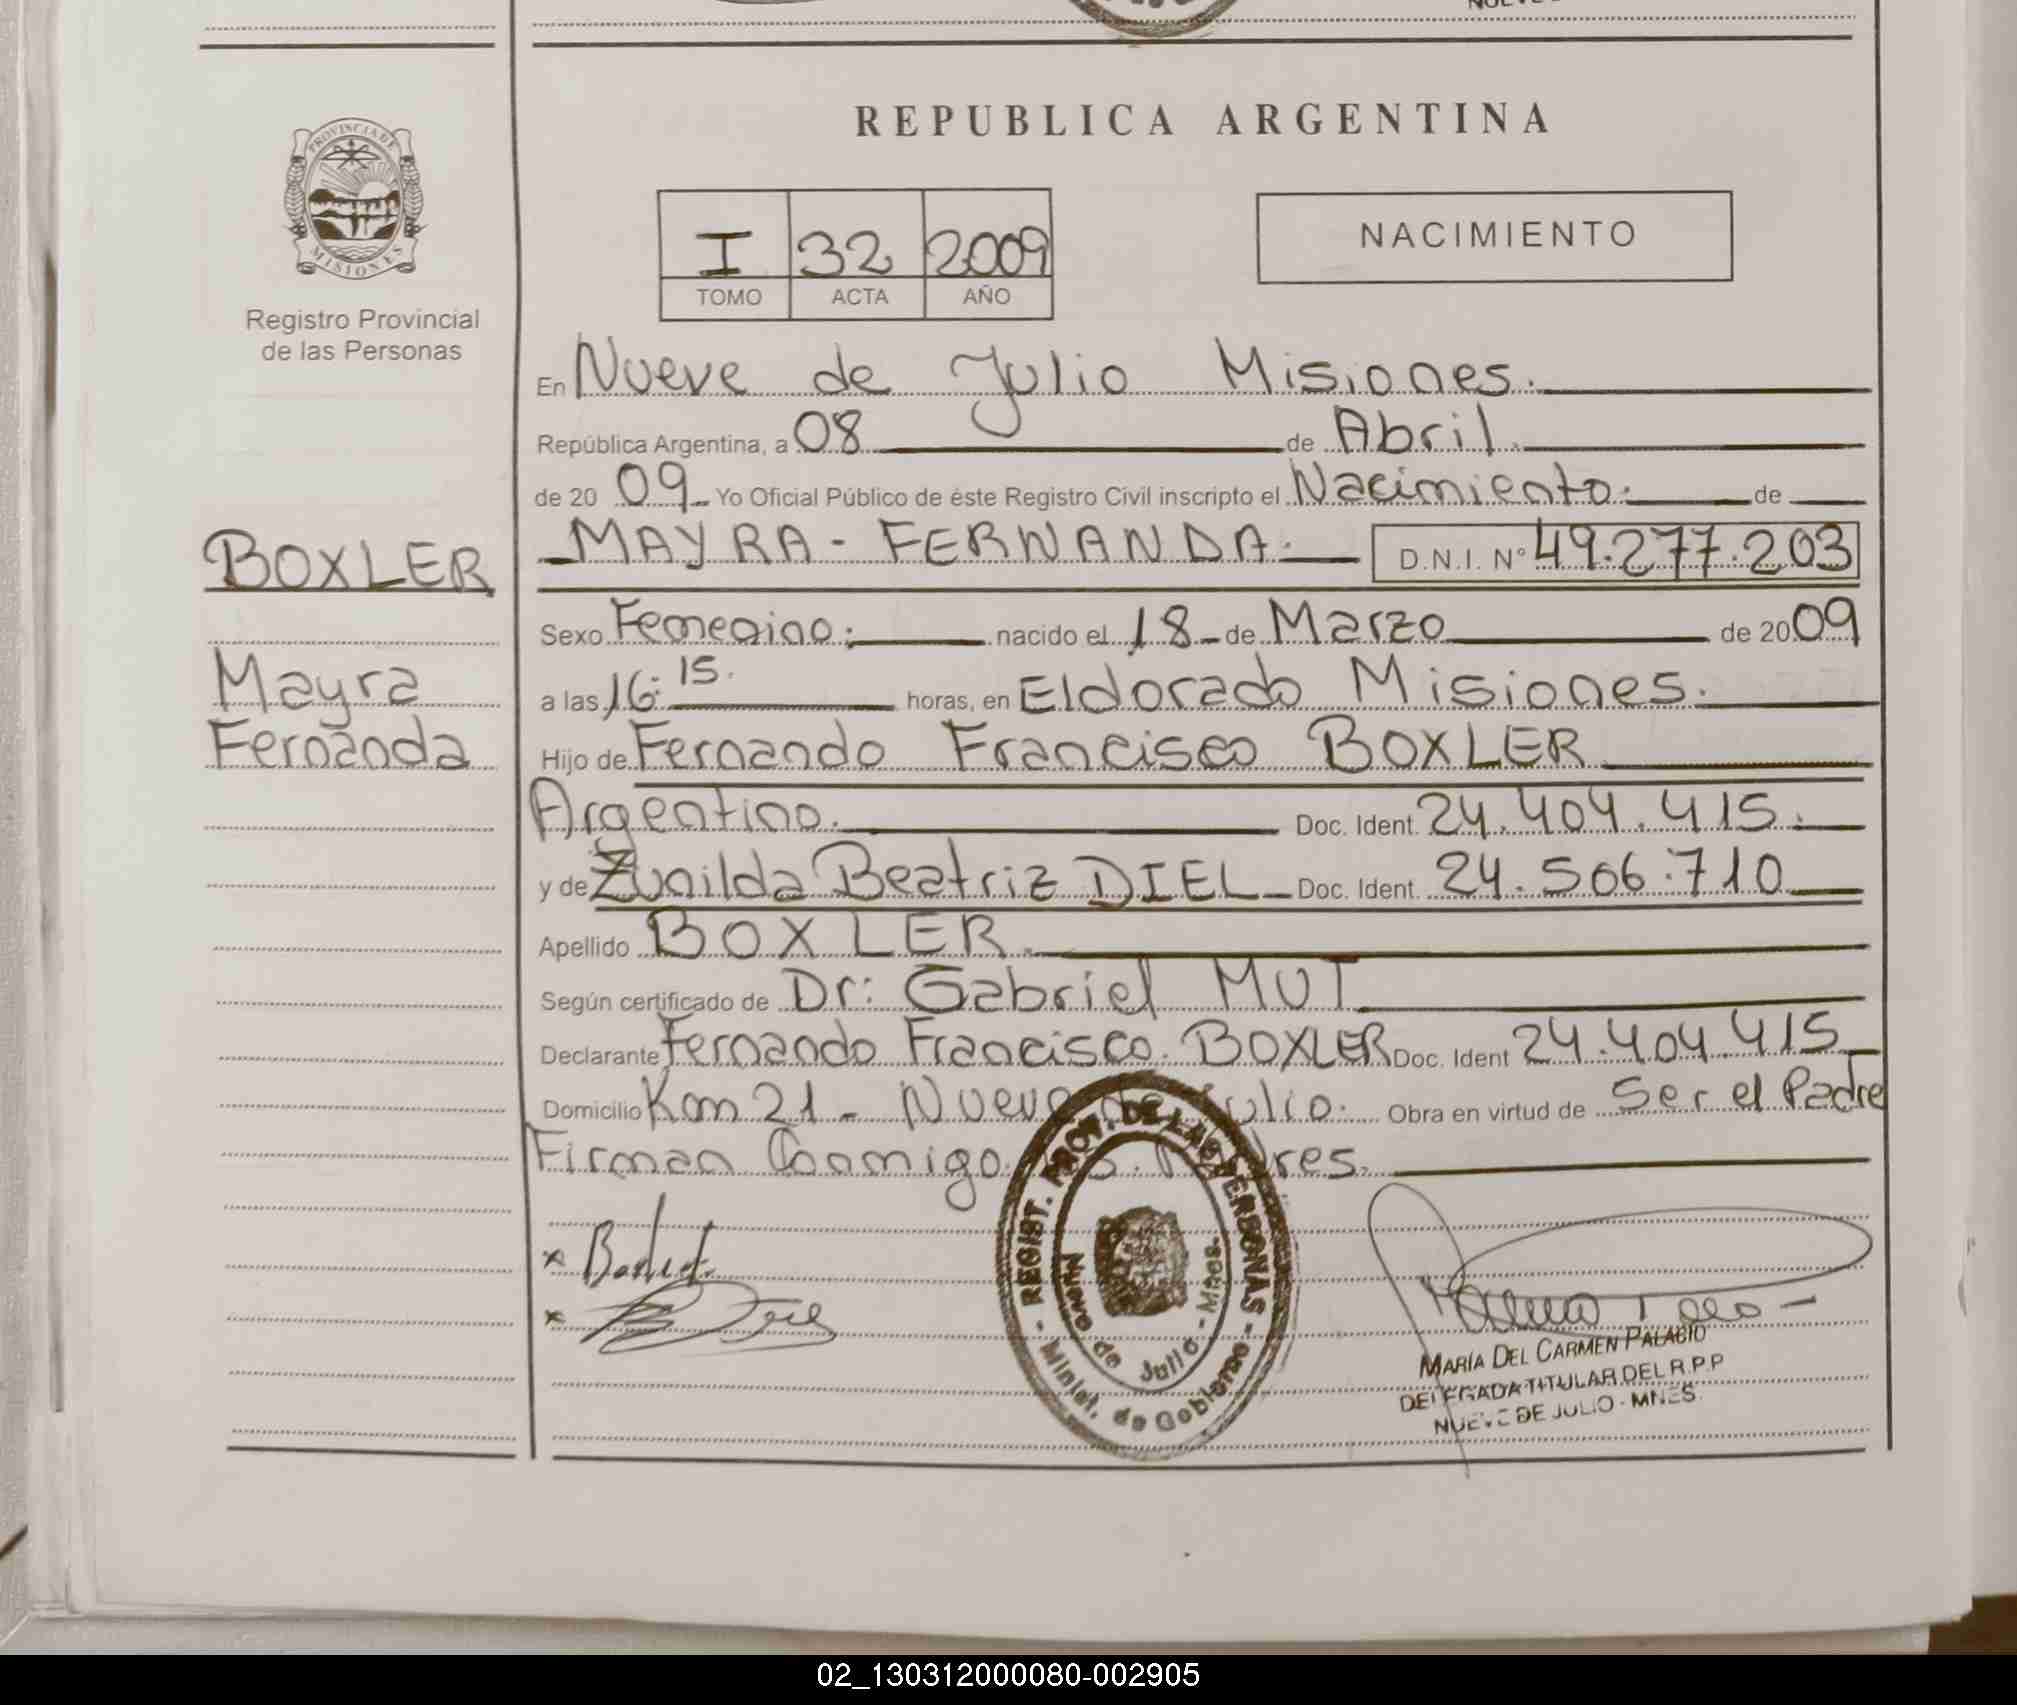 REPUBLICA ARGENTINA
PROVINCIA DE
MISIONES
Registro Provincial
de las Personas
I 32 2009
TOMO ACTA AÑO
NACIMIENTO
En Nueve de Julio Misiones.
República Argentina, a 08 de Abril.
de 20 09 Yo Oficial Público de éste Registro Civil inscripto el Nacimiento. de
BOXLER
MAYRA - FERNANDA. D.N.I. Nº 49.277.203
Sexo Femenino; nacido el 18 de Marzo de 2009
Mayra
a las 16:15. horas, en Eldorado Misiones.
Fernanda
Hijo de Fernando Francisco BOXLER
Argentino. Doc. Ident. 24.404.415.
y de Zunilda Beatriz DIEL Doc. Ident. 24.506.710
Apellido BOXLER.
Según certificado de Dr: Gabriel MUT
Declarante Fernando Francisco BOXLER Doc. Ident 24.404.415
Domicilio Km 21 - Nueve de Julio. Obra en virtud de Ser el Padre
Firman Conmigo
REGIST. PROV. DE LAS PERSONAS
Nueve de Julio - Mnes.
Minist. de Gobierno
MARÍA DEL CARMEN PALACIO
DELEGADA TITULAR DEL R.P.P
NUEVE DE JULIO - MNES.
02_130312000080-002905